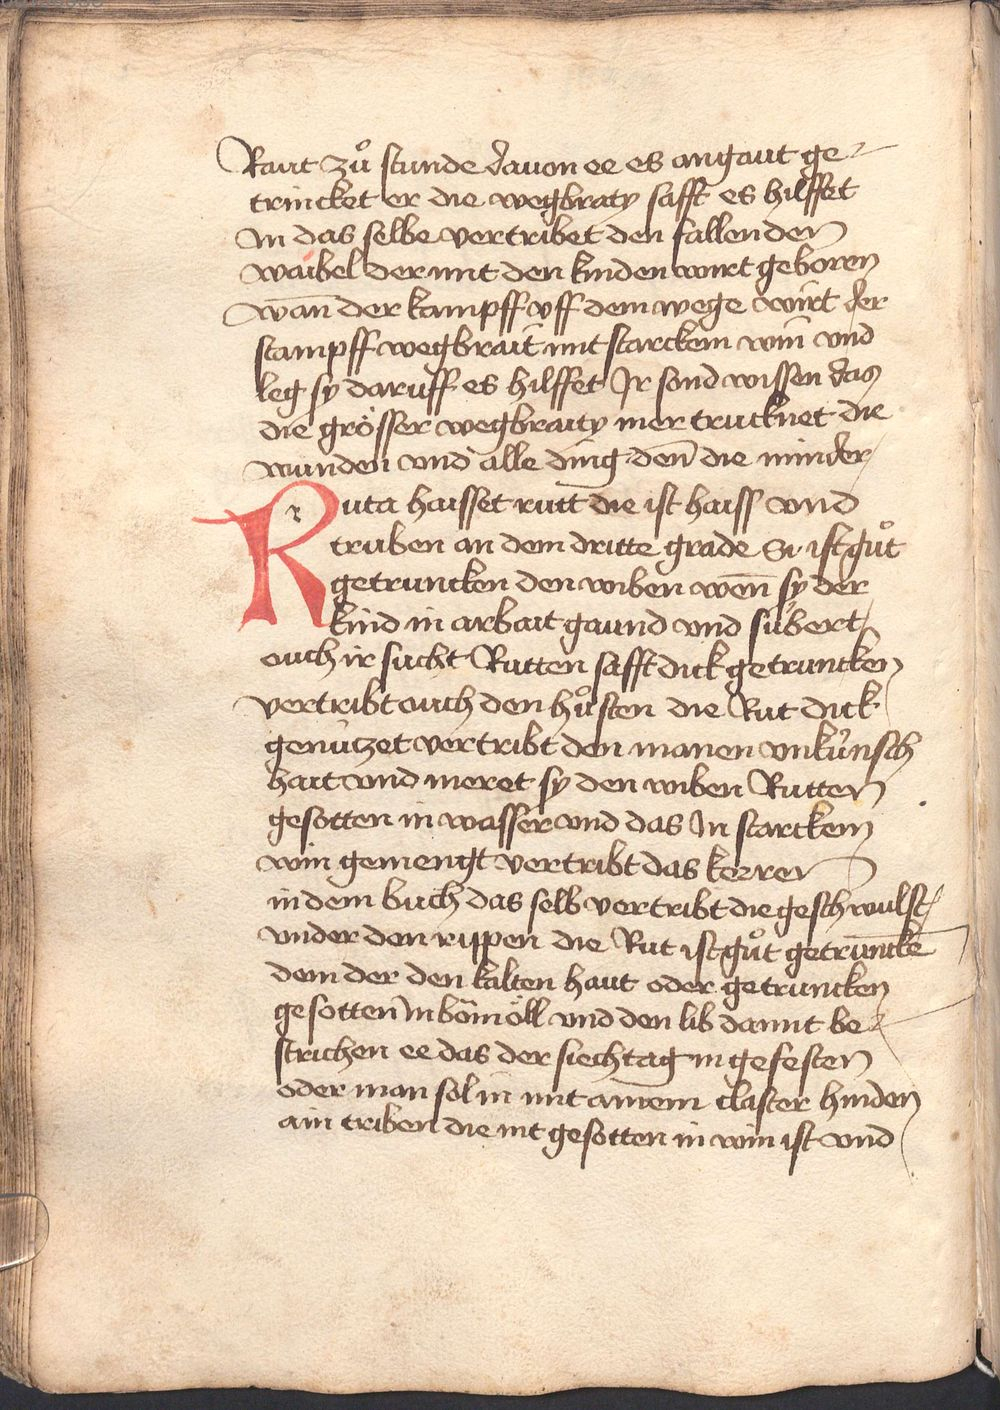 Raut zuͦ stunde dauon ee es angaut ge-
trincket er die wegbraty safft es hilffet
In das selbe vertribet den fallenden
waibel der mit den kinden wirt geboren
wan̄ der kampff vff dem wege wirt der
stampff wegbrait mit starckem win vnd
leg sy daruff es hilffet Ir sond wissen das
die grösser wegbraity mer trucknet die
wunden vnd alle ding den̄ die minder
Ruta haisset rutt die ist haiss vnd
truken an dem dritte grade Si ist guͦt
getruncken den wiben wen̄ sy der
kind in arbait gaund vnd sübert
ouch ir sucht Rutten safft dick getruncken
vertribt ouch den huͦsten die Rut dick
genützet vertribt den manen vnkünsch
hait vnd meret sy den wiben Rutten
gesotten in wasser vnd das In starckem
win gemengt vertribt das kerren
in dem buch das selb vertribt die geschwulst
vnder den rippen die Rut ist guͦt getrunckē
dem der den kalten haut oder getruncken
gesotten In bömöll vnd den lib damit be-
strichen ee das der siechtag in gefesten
oder man sol in mit ainem claster hinden
ain triben die mit gesotten in win ist vnd